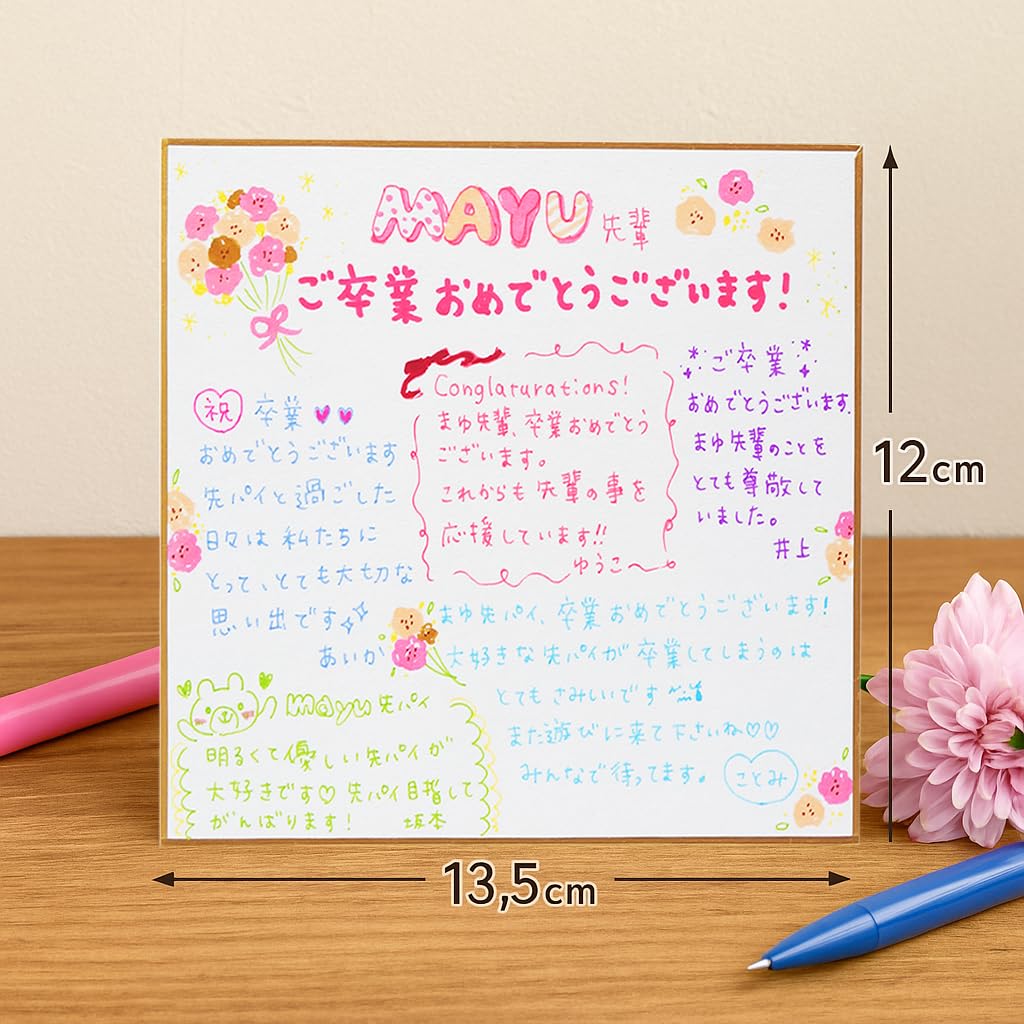 MAYU 先輩
ご卒業おめでとうございます!
祝 卒業
おめでとうございます
先パイと過ごした
日々は私たちに
とって、とても大切な
思い出です
あいか
Conglaturations!
まゆ先輩、卒業おめでとう
ございます。
これからも先輩の事を
応援しています!!
ゆうこ〜
ご卒業
おめでとうございます。
まゆ先輩のことを
とても尊敬して
いました。
井上
mayu 先パイ
明るくて優しい先パイが
大好きです♡ 先パイ目指して
がんばります!
坂本
まゆ先パイ、卒業おめでとうございます!
大好きな先パイが卒業してしまうのは
とてもさみしいです
また遊びに来て下さいね♡♡
みんなで待ってます。
ことみ
12cm
13,5cm